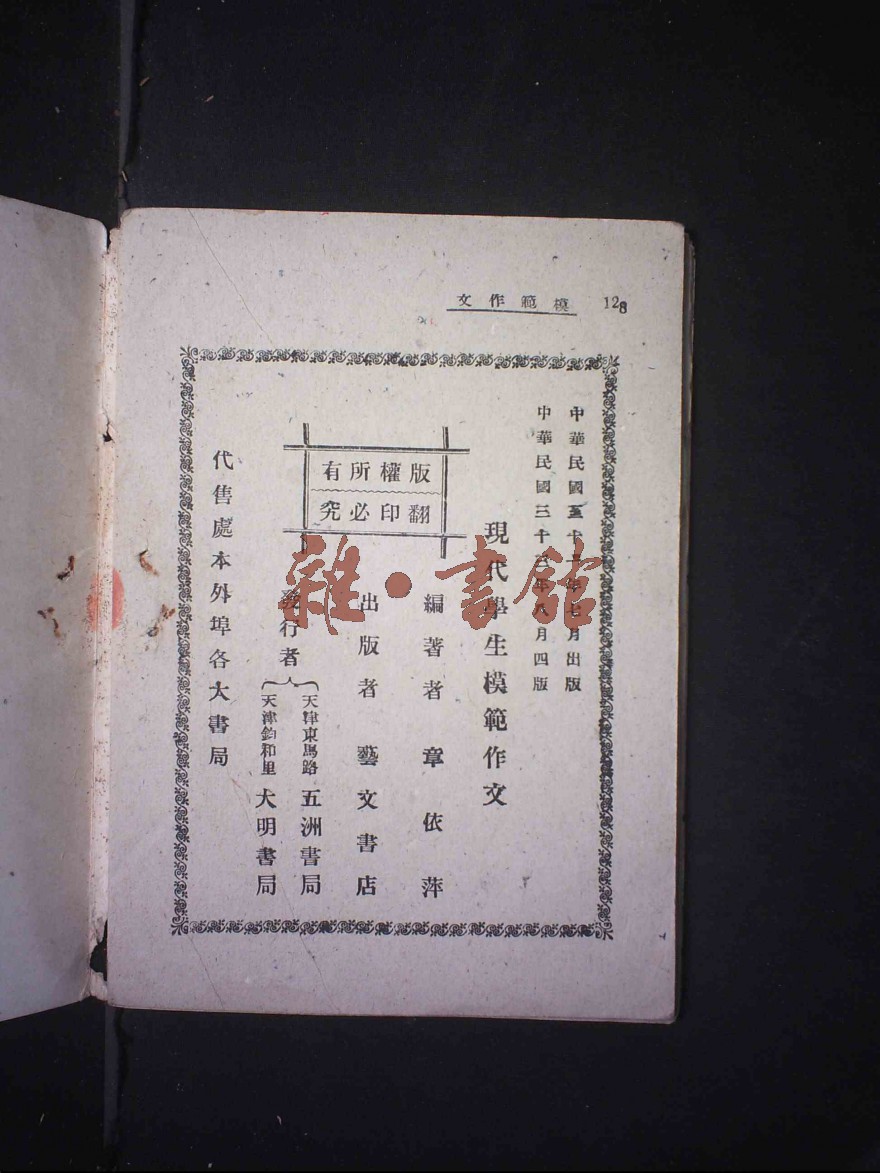 模範作文 128
中華民國三十一年七月出版
中華民國三十三年八月四版
現代學生模範作文
版權所有
翻印必究
編著者 章依萍
出版者 藝文書店
發行者
天津東馬路 五洲書局
天津鈞和里 大明書局
代售處本外埠各大書局
雜·書館